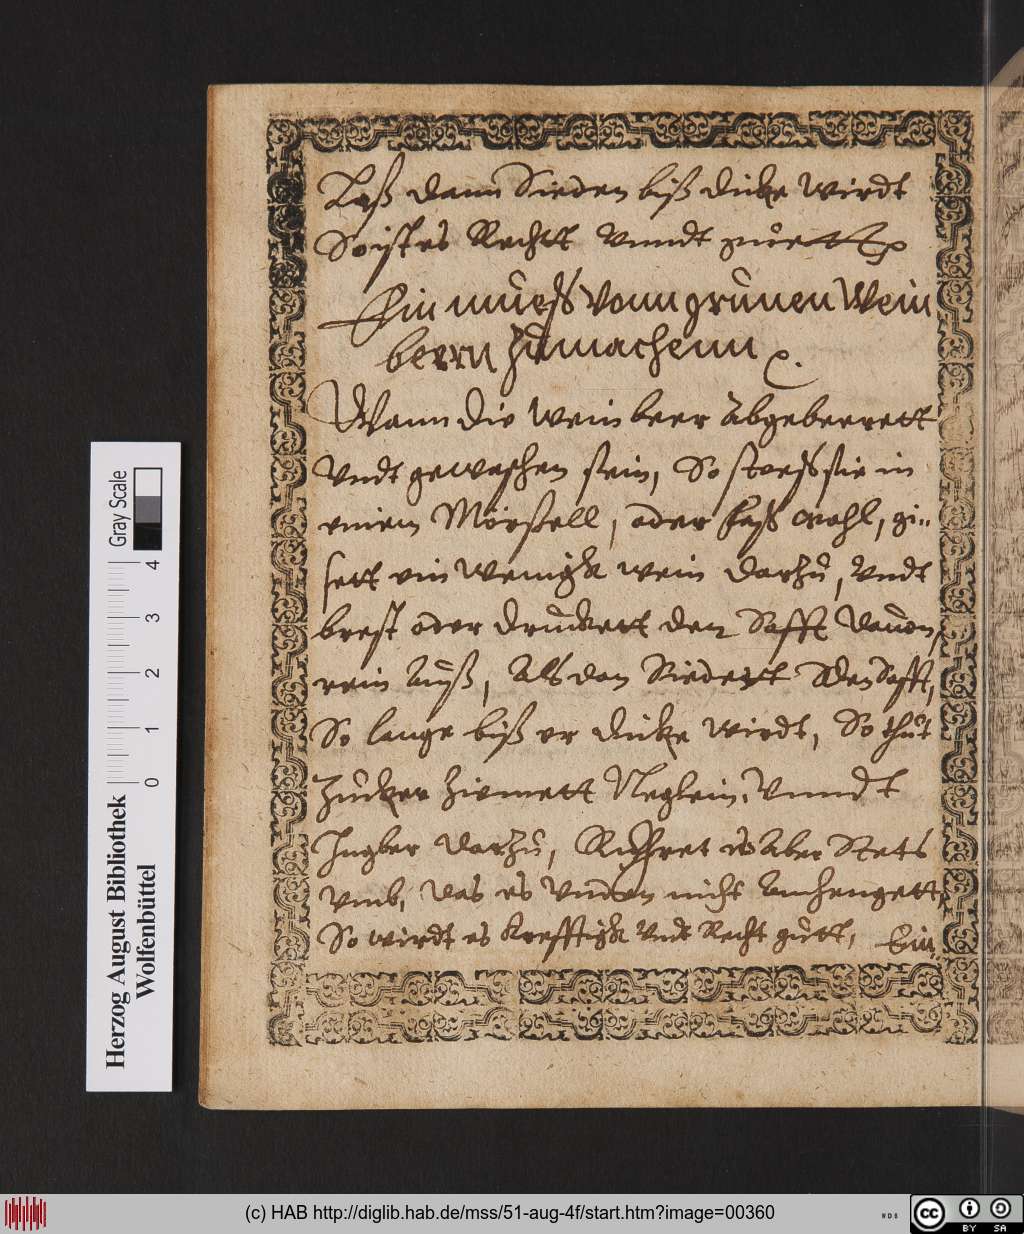 Laß dann Sieden biß dicke wirdt
So ist es Recht Vnndt guett
Ein mueß vonn grünen Wein
beern zumachenn
Wann die Weinbeer abgebeerett
Vndt gewaschen sein, So stoeß sie in
einem Mörsell, oder faß wohl, gi=
sett ein wenigk wein darzu, Vndt
brest oder druckett den Safft dauon,
rein auß, Als dan Siedett den Safft,
So lange biß er dicke wirdt, So thut
Zucker Zimmett Neglein, Vnndt
Ingber darzu, Ruhret es Aber Stets
vmb, das es vnden nicht anhengett,
So wirdt es krefftigk vndt Recht gutt, Ein
Herzog August Bibliothek
Wolfenbüttel
Gray Scale
0 1 2 3 4
(c) HAB http://diglib.hab.de/mss/51-aug-4f/start.htm?image=00360
WDB
cc BY SA